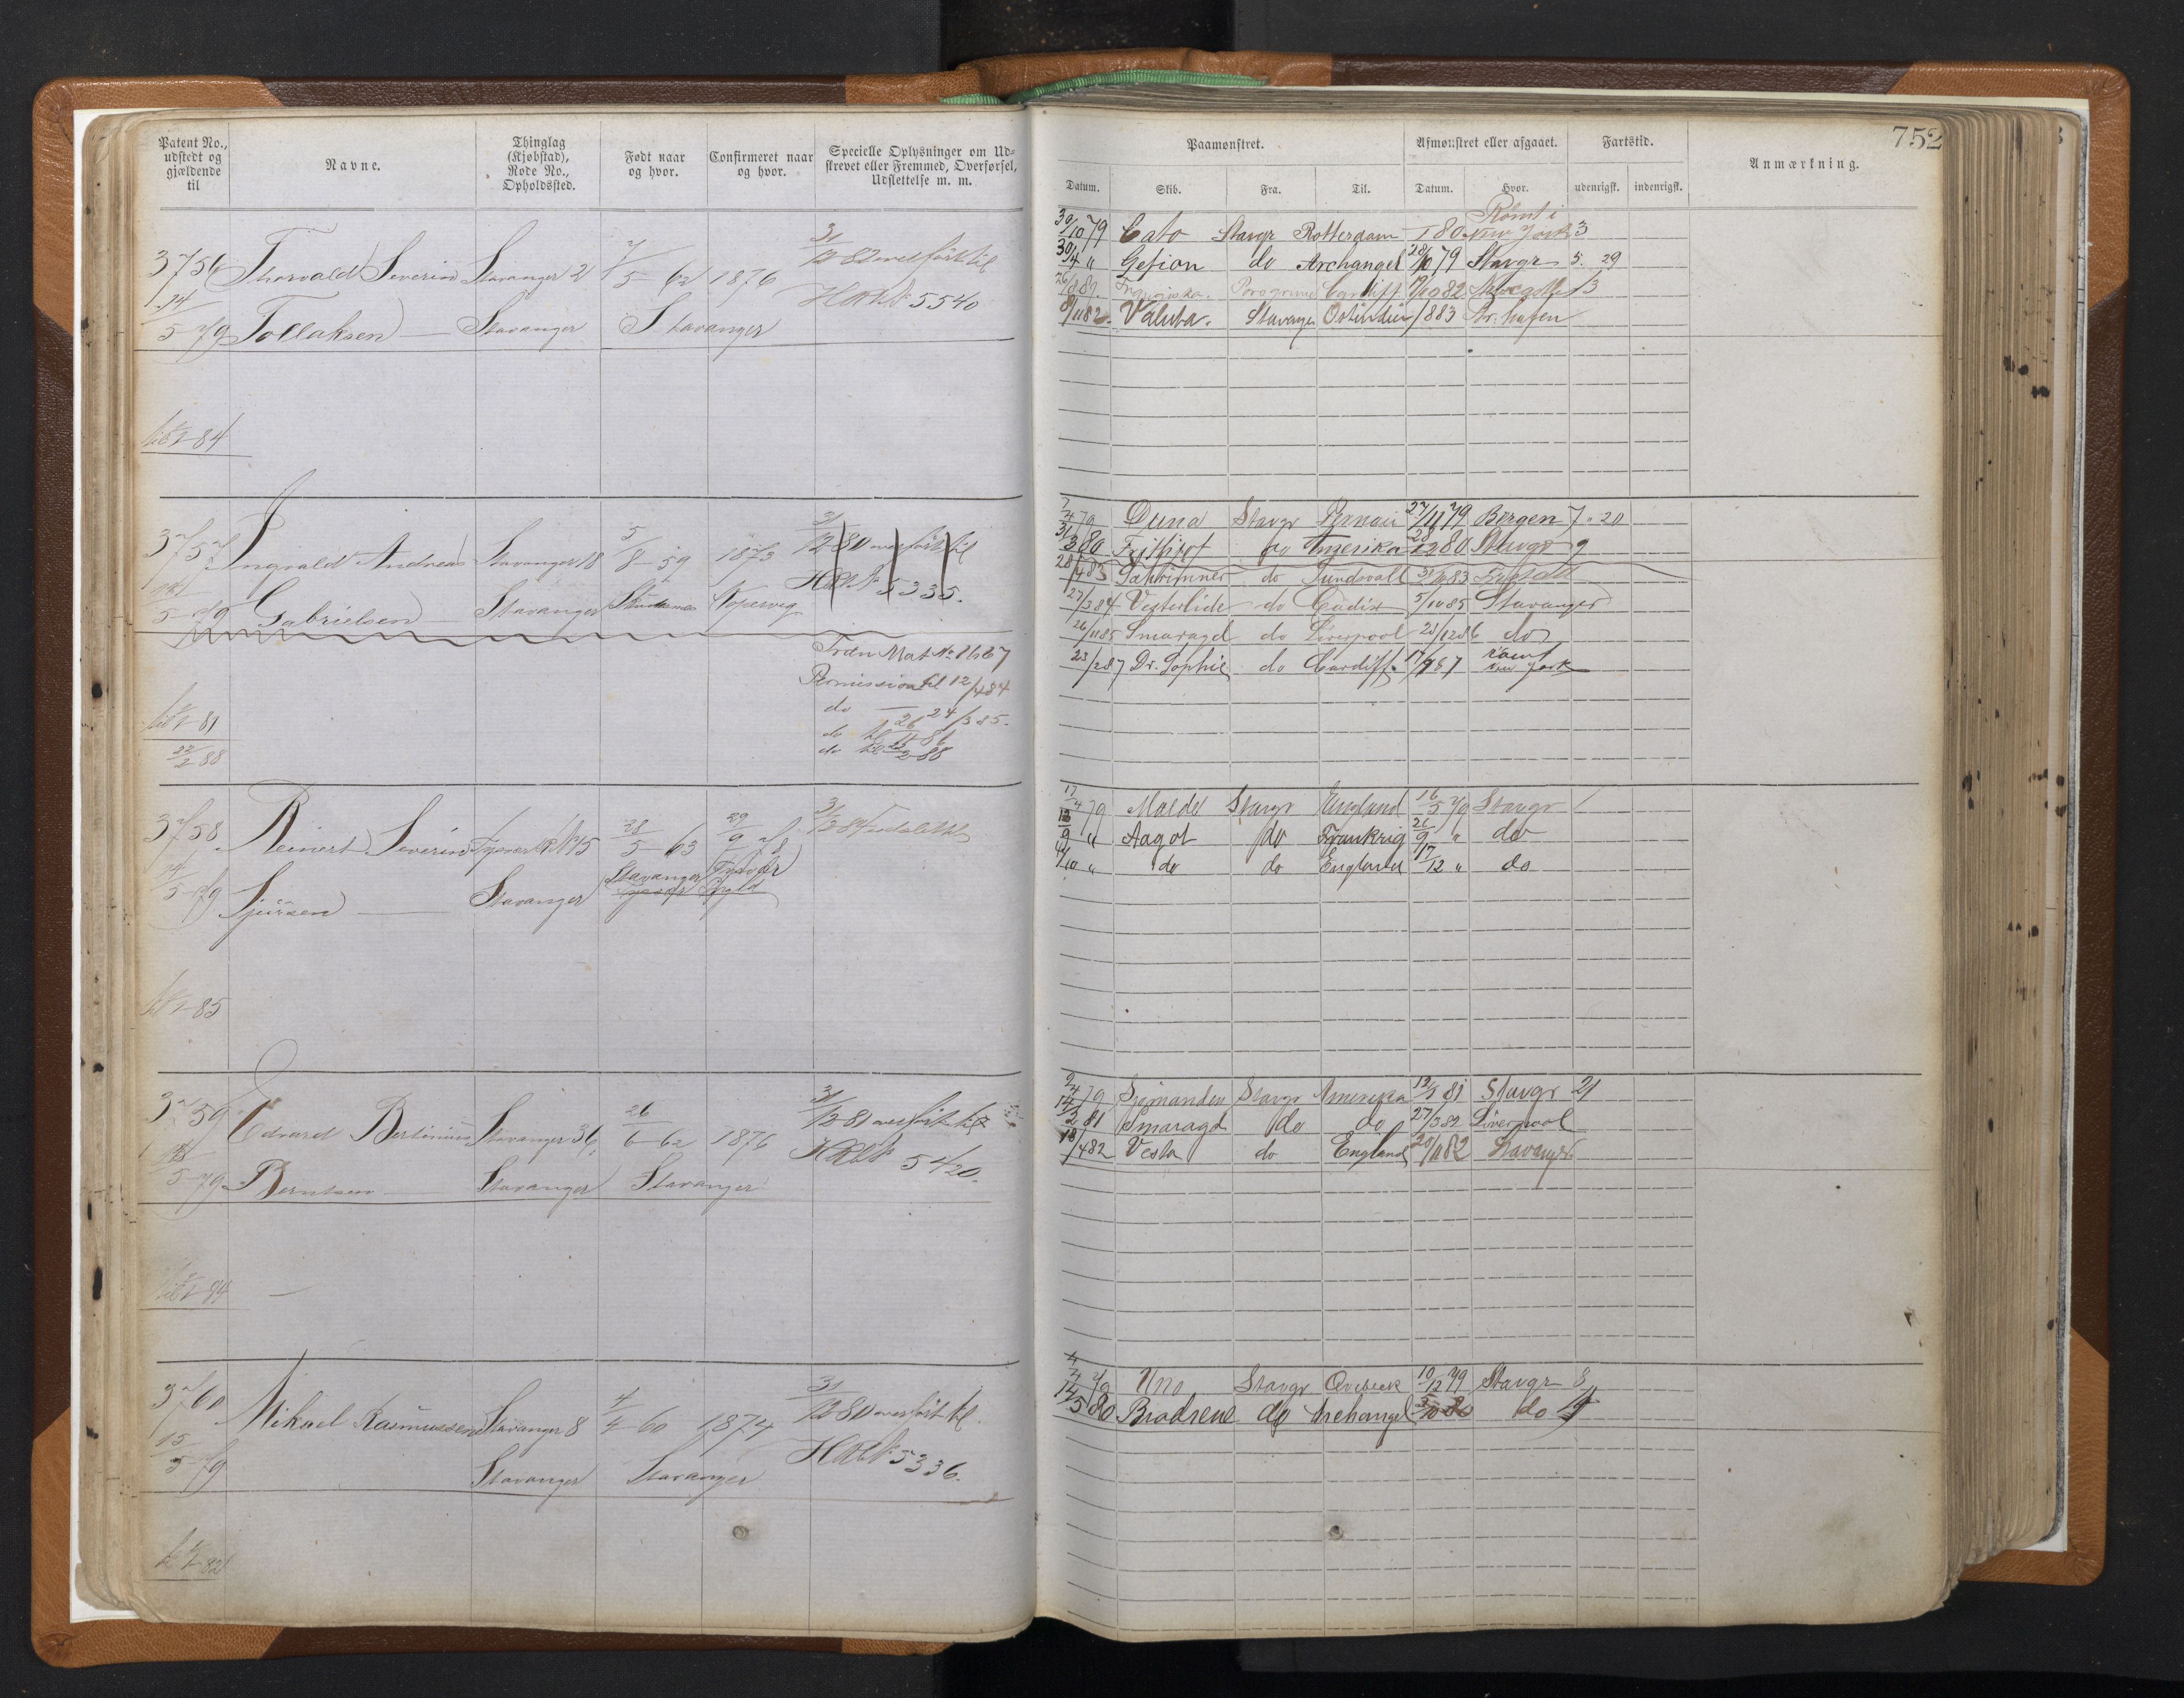 Patent No., udstedt og gjældende til
Navne.
Thinglag (Kjøbstad), Rode No., Opholdssted.
Født naar og hvor.
Confirmeret naar og hvor.
Specielle Oplysninger om Udskrevet eller Fremmed, Overførsel, Udslettelse m. m.
3756 Thorvald Severin Stavanger 2 7/5 62 1876 31/12 82 overført til
14/5 79 Tollaksen Stavanger Stavanger 5540
84
3757 Ingvald Andreas Stavanger 18 5/8 59 1873 31/12 80 overført til
5 79 Gabrielsen Stavanger Kopervig 5335.
Permission til 12/4 84
do 24/3 85.
do 86
do 88
81
88
3758 Reinert Severin 28/5 63 29/9 78 31/12 84
5 79 Sjursen Stavanger Stavanger
85
3759 Edvard Bertinius Stavanger 36 26/6 62 1876 31/12 81 overført til
5 79 Berntsen Stavanger Stavanger 5420.
84
3760 Mikael Rasmussen Stavanger 8 4/4 60 1874 31/12 80 overført til
15/5 79 Stavanger Stavanger 5336.
82
752
Paamønstret.
Afmønstret eller afgaaet.
Fartstid.
Anmærkning.
Datum. Skib. Fra. Til. Datum. Hvor. udenrigsk. indenrigsk.
Rømt i
30/10 79 Cato Stavgr Rotterdam 80 New York 3
30/4 " Gefion do Archangel 28/10 79 Stavgr 5 29
Cardiff 82 3
8/11 82 Valuta. Stavanger Ostindien /883
7/4 79 Duna Stavgr 27/11 79 Bergen 7 20
31/3 80 Fritjof do Amerika 28/12 80 Stavgr 9
28/4 83 Sæhrimner do Sundsvall 83
27/3 84 Vesterlide do Cadix 5/10 85 Stavanger
26/11 85 Smaragd do Liverpool 28/12 86 do
23/2 87 Dr. Sophie do Cardiff 87 Rømt New York
17/4 79 Molde Stavgr England 16/5 79 Stavgr 1
12/9 " Aagot do Frankrig 26/9 " do
/10 " do do England 17/12 " do
2/4 79 Sjømanden Stavgr Amerika 81 Stavgr 21
14/2 81 Smaragd do do 27/3 82 Liverpool
18/4 82 Vesta do England 20/11 82 Stavanger
4/4 79 Uno Stavgr 10/12 79 Stavgr 8
14/5 80 Brødrene do Archangel do